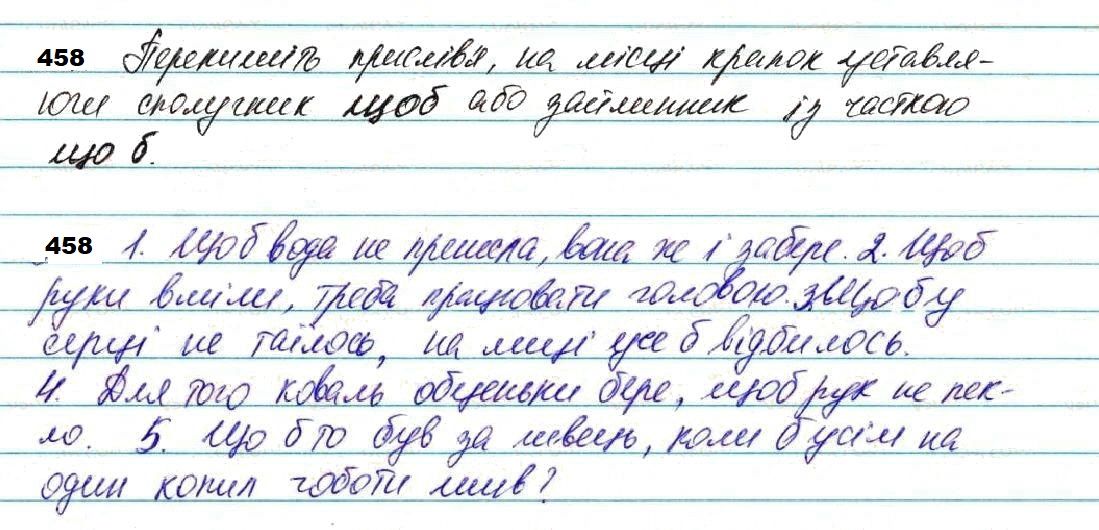 458 Перепишіть прислів'я, на місці крапок уставля-
ючи сполучник щоб або займенник із часткою
що б.
458 1. Що б вода не принесла, вона же і забере. 2. Щоб
руки вміли, треба працювати головою. 3. Що б у
серці не таїлось, на лиці усе б відбилось.
4. Для того коваль обценьки бере, щоб рук не пек-
ло. 5. Що б то був за швець, коли б усім на
один копил чоботи шив?